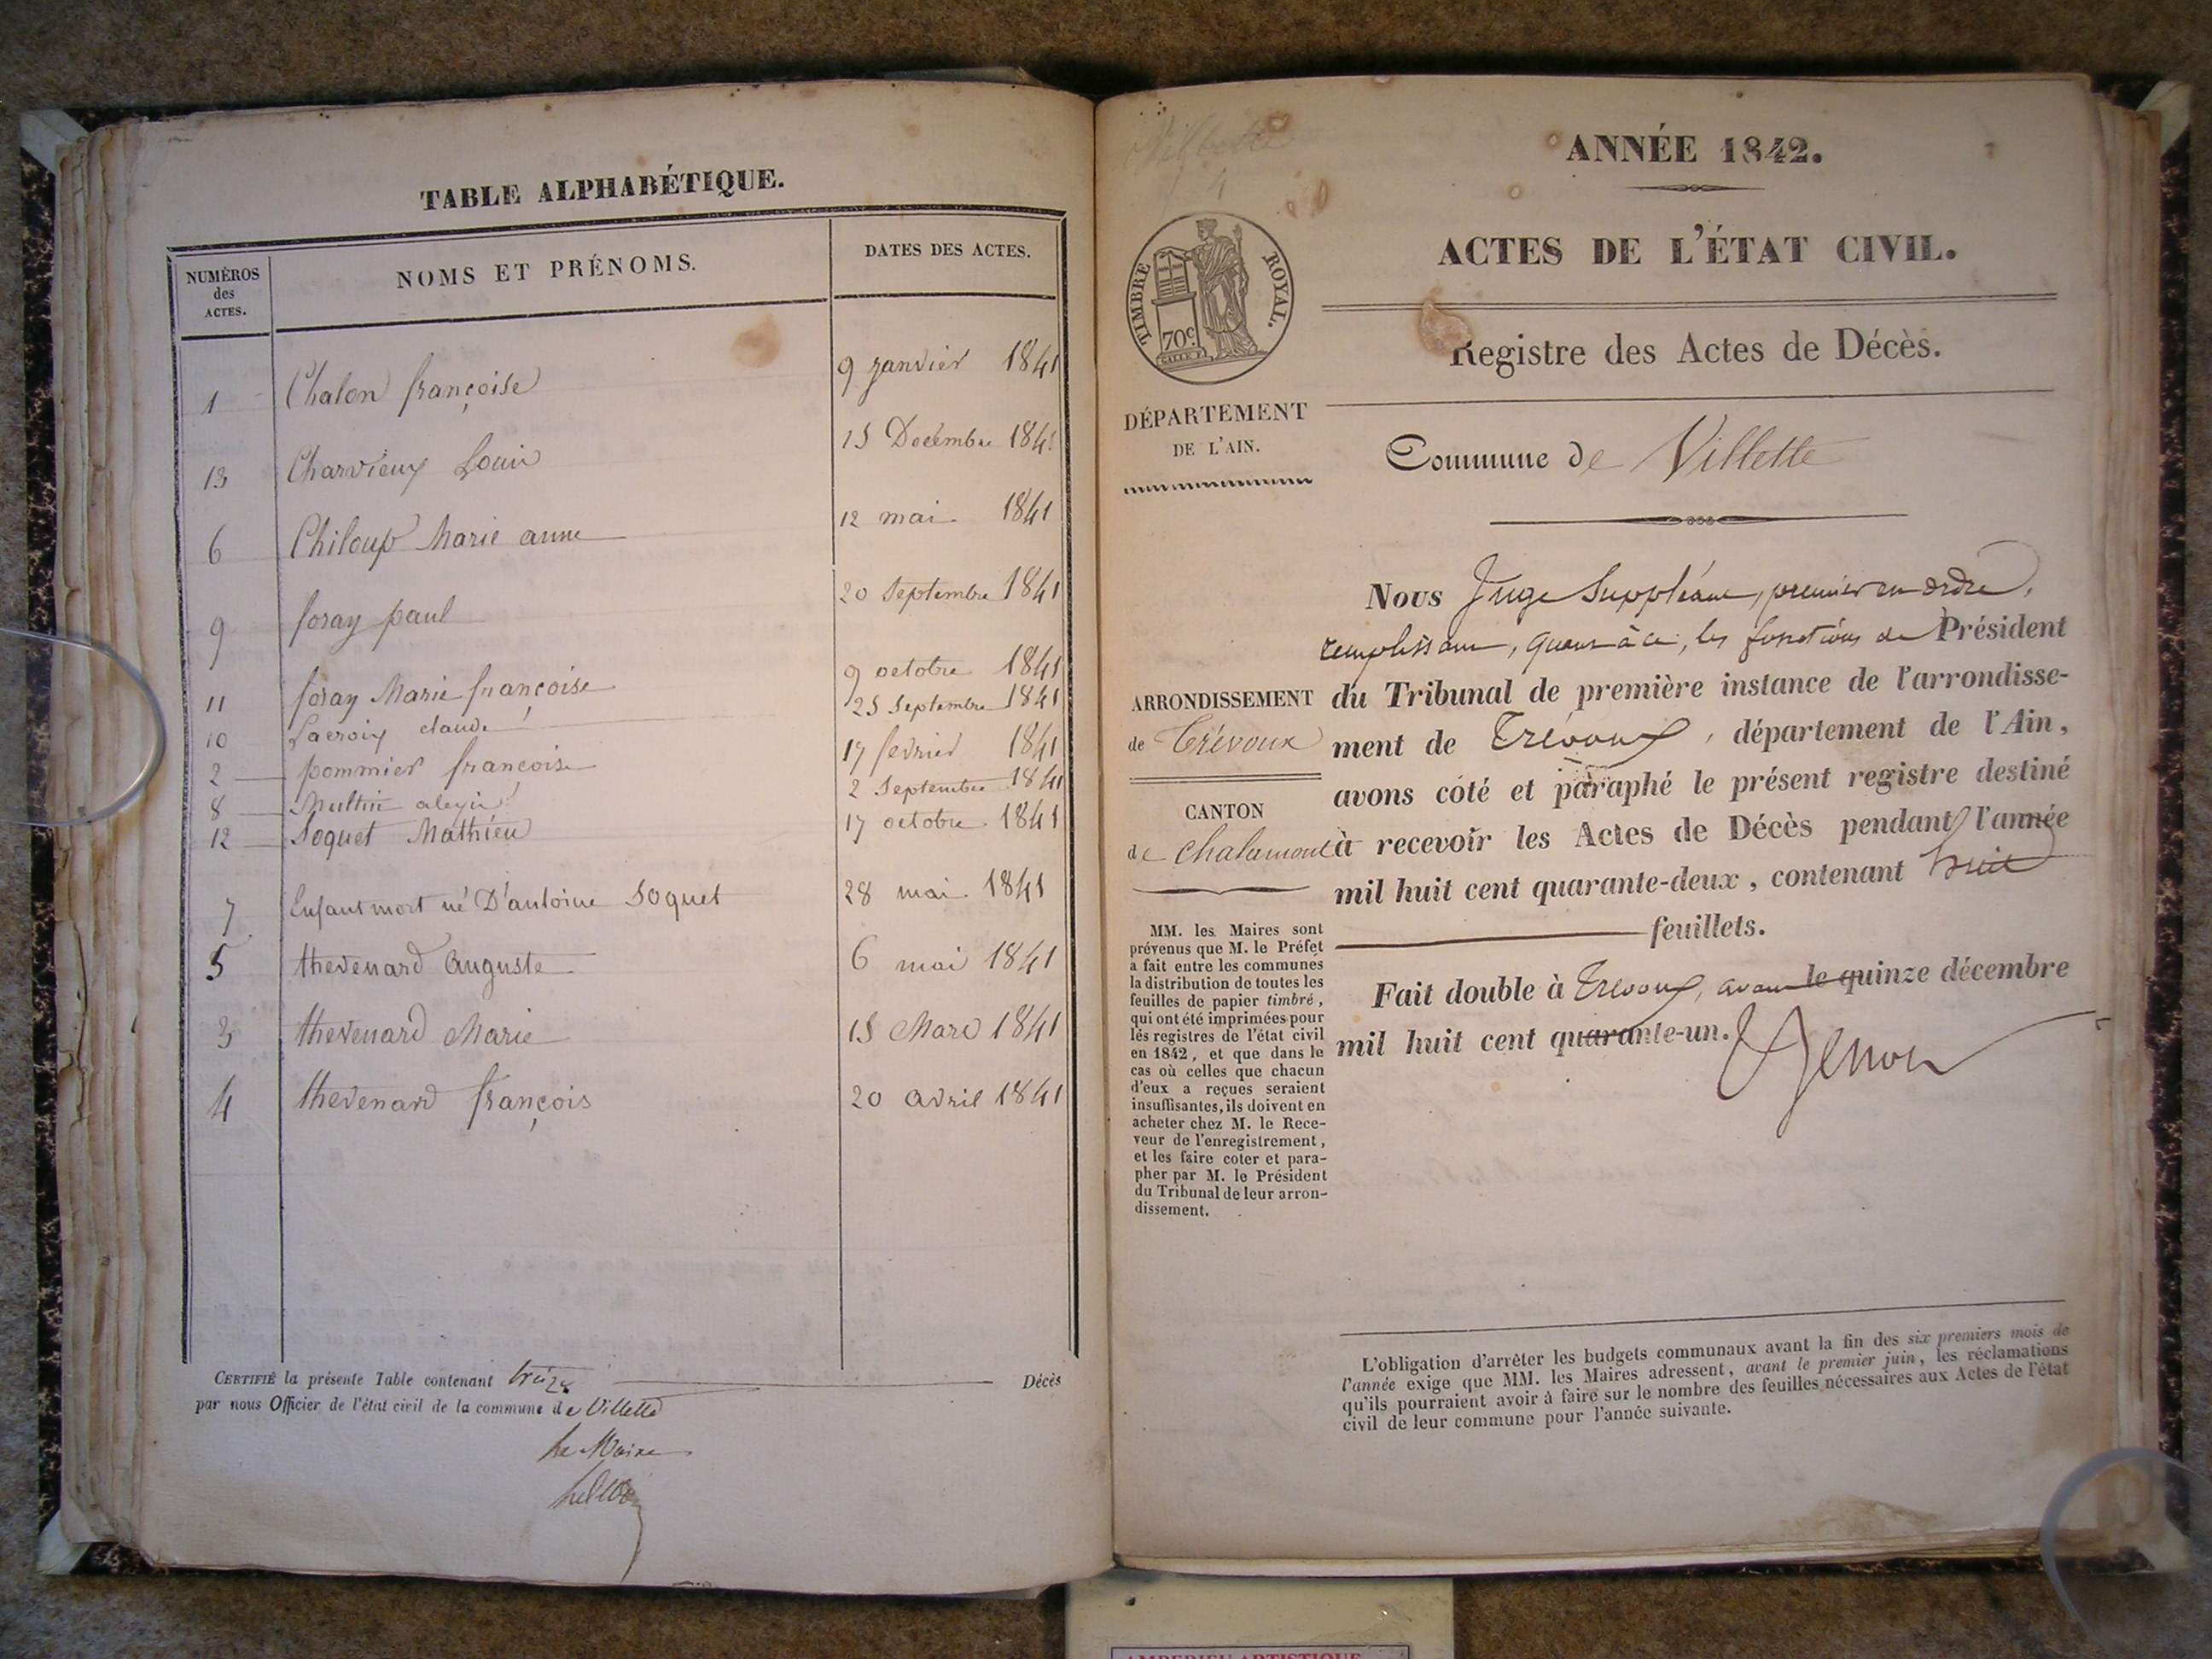 TABLE ALPHABÉTIQUE.
NUMÉROS des ACTES. NOMS ET PRÉNOMS. DATES DES ACTES.
1 Chalon françoise 9 janvier 1841
13 Charvieux Louis 15 Decembre 1841
6 Chiloup Marie anne 12 mai 1841
9 foray paul 20 Septembre 1841
11 foray Marie françoise 9 octobre 1841
10 Lacroix claude 25 Septembre 1841
2 pommier francoise 17 fevrier 1841
8 alexis 2 Septembre 1841
12 Soquet Mathieu 17 octobre 1841
7 Enfant mort né D'antoine Soquet 28 mai 1841
5 thevenard Auguste 6 mai 1841
3 thevenard Marie 15 Mars 1841
4 thevenard françois 20 avril 1841
CERTIFIÉ la présente Table contenant treize Décès
par nous Officier de l'état civil de la commune de Villette
Le Maire
Villette
1
ANNÉE 1842.
ACTES DE L'ÉTAT CIVIL.
TIMBRE ROYAL.
70c
Registre des Actes de Décès.
DÉPARTEMENT
DE L'AIN.
Commune de Villette
ARRONDISSEMENT
de Trévoux
CANTON
de Chalamont
MM. les Maires sont
prévenus que M. le Préfet
a fait entre les communes
la distribution de toutes les
feuilles de papier timbré,
qui ont été imprimées pour
les registres de l'état civil
en 1842, et que dans le
cas où celles que chacun
d'eux a reçues seraient
insuffisantes, ils doivent en
acheter chez M. le Rece-
veur de l'enregistrement,
et les faire coter et para-
pher par M. le Président
du Tribunal de leur arron-
dissement.
Nous Juge Suppléant, premier en ordre,
remplissant, quant à ce, les fonctions de Président
du Tribunal de première instance de l'arrondisse-
ment de Trévoux, département de l'Ain,
avons coté et paraphé le présent registre destiné
à recevoir les Actes de Décès pendant l'année
mil huit cent quarante-deux, contenant huit
feuillets.
Fait double à Trévoux, avant le quinze décembre
mil huit cent quarante-un.
L'obligation d'arrêter les budgets communaux avant la fin des six premiers mois de
l'année exige que MM. les Maires adressent, avant le premier juin, les réclamations
qu'ils pourraient avoir à faire sur le nombre des feuilles nécessaires aux Actes de l'état
civil de leur commune pour l'année suivante.
AMBERIEU ARTISTIQUE